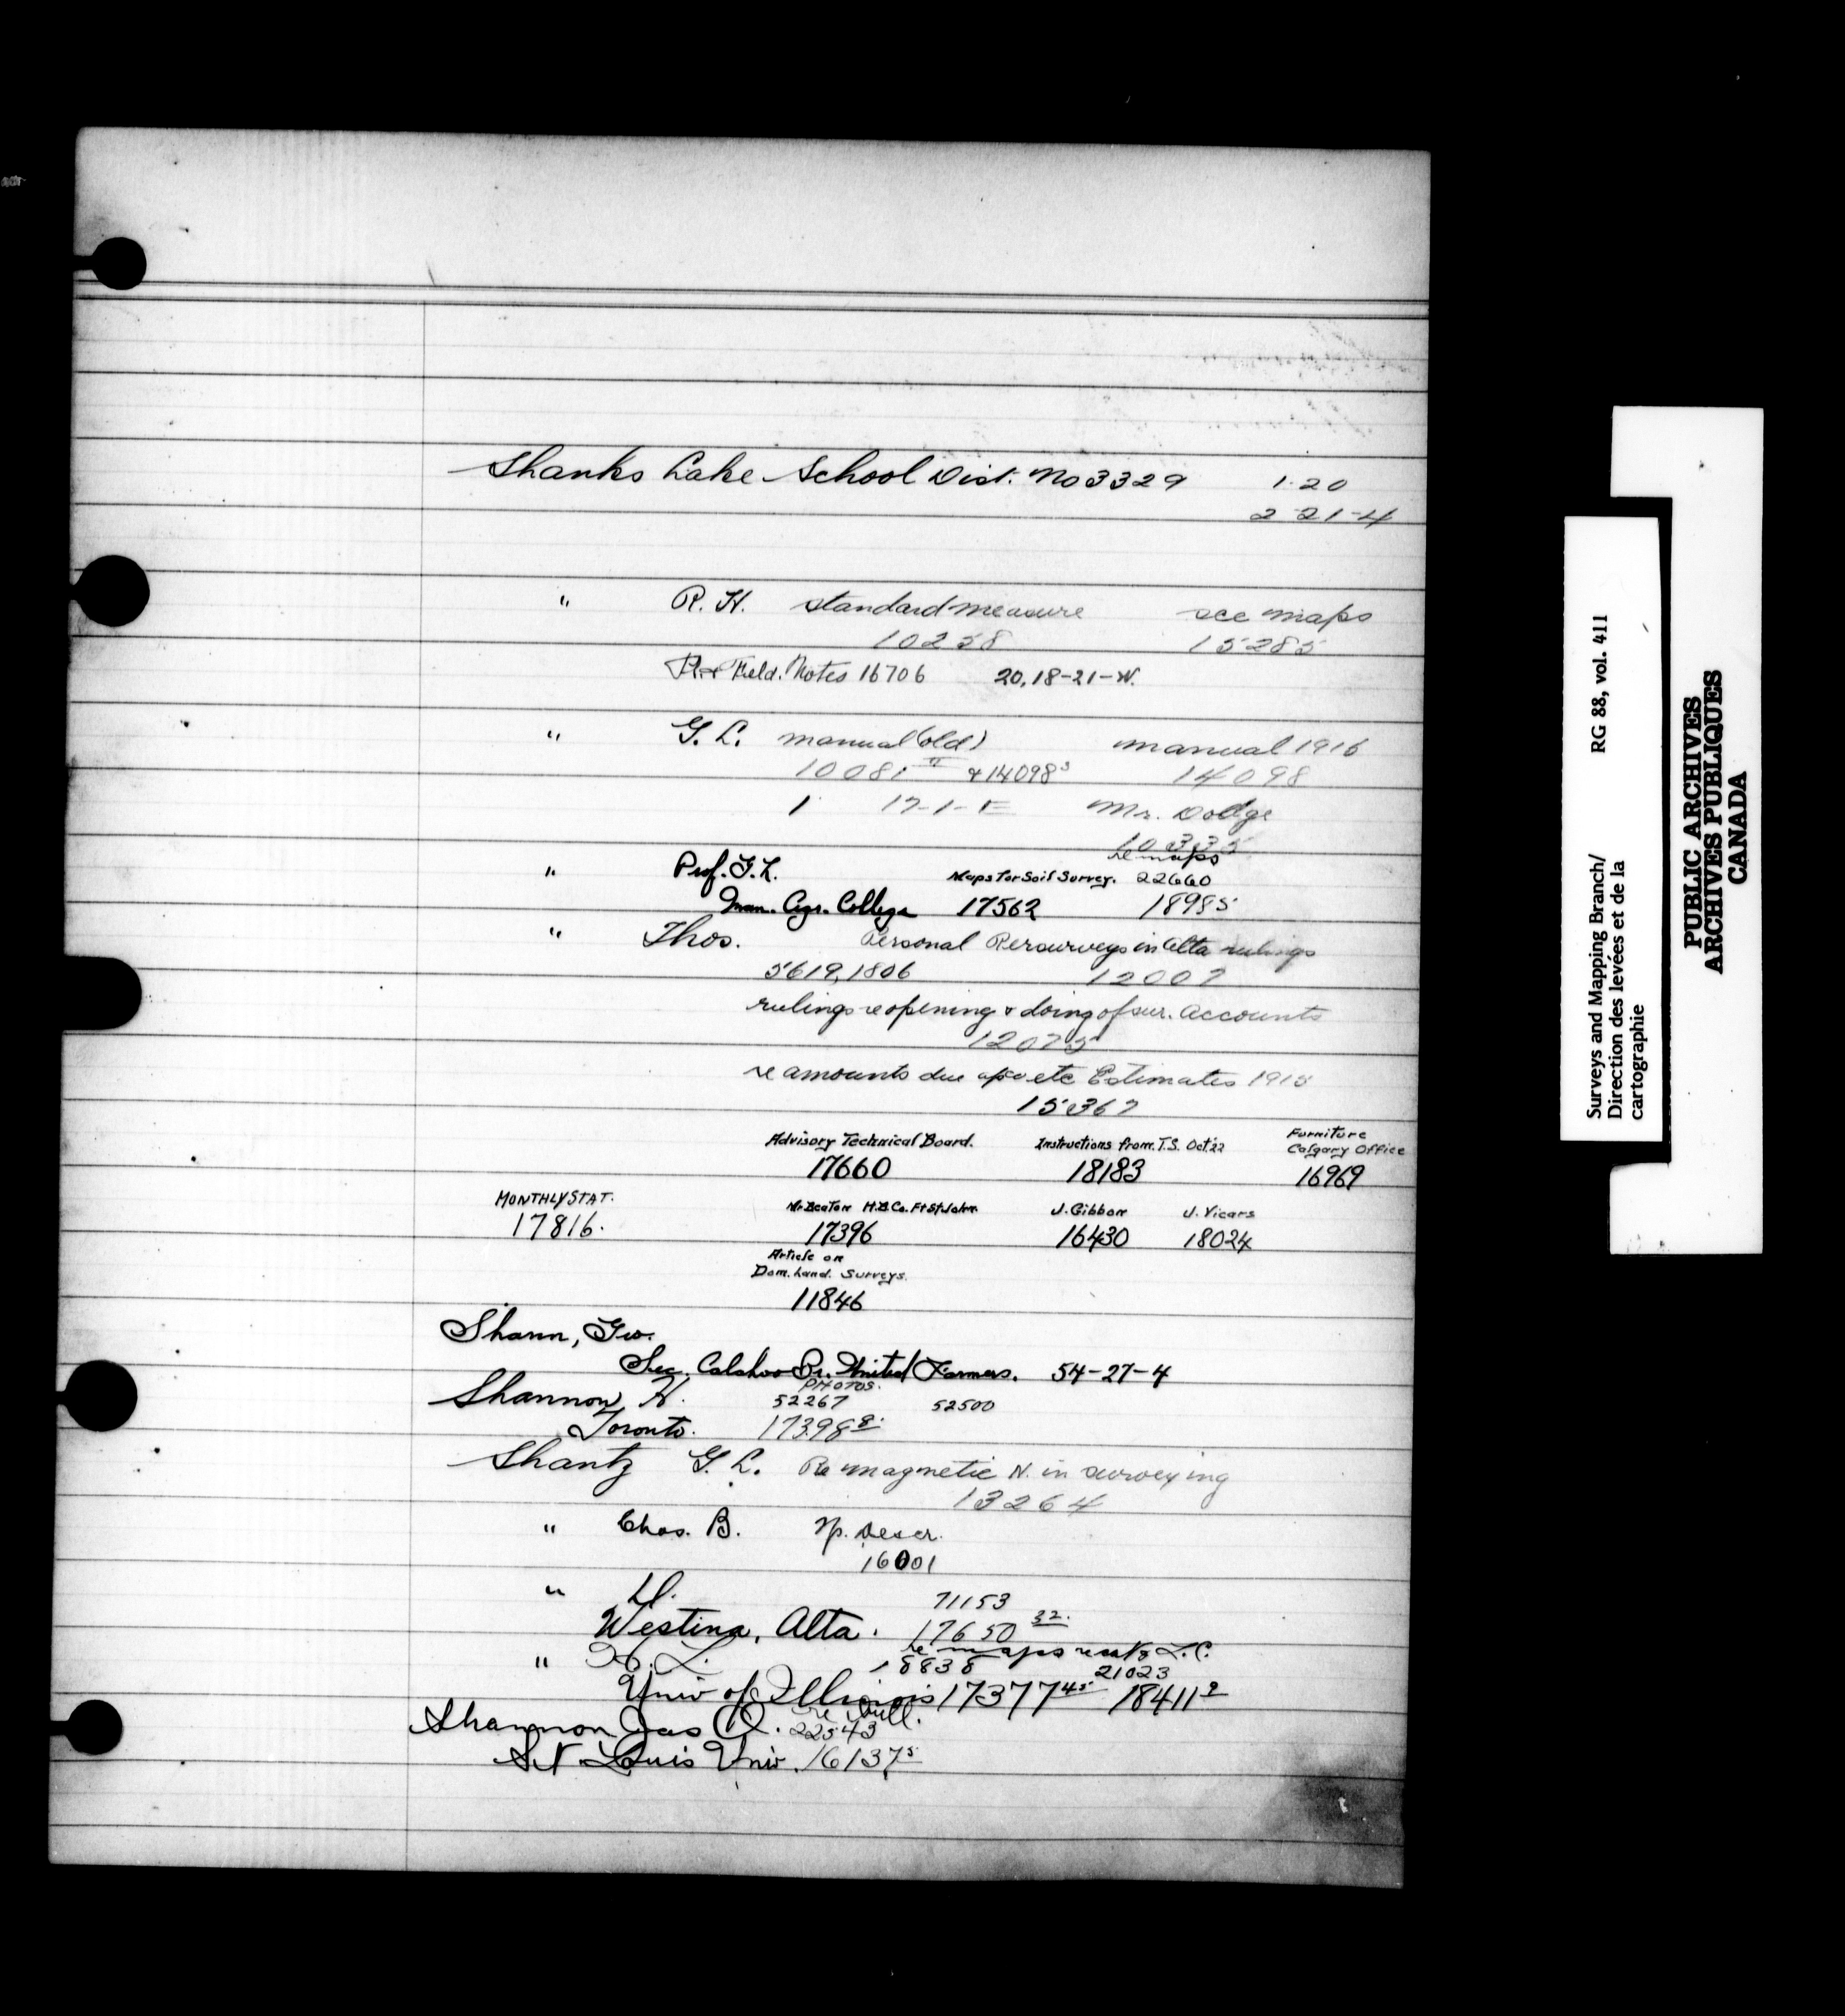 Shanks Lake School Dist. No 3329 1-20
2-21-4
" R. H. standard measure see maps
10258 15285
Field Notes 16706 20, 18-21-W.
" G. L. manual (old) manual 1916
10081 & 14098 14098
1 17-1-E Mr. Dodge
10335
re maps
" Prof. G. L. Maps for Soil Survey. 22660
Man. Agr. College 17562 18985
" Thos. Personal Resurveys in Alta rulings
5619, 1806 12007
rulings reopening & doing of sur. Accounts
12075
re amounts due etc Estimates 1915
15367
Advisory Technical Board. Instructions from T.S. Oct. 22 Furniture Calgary Office
17660 18183 16969
MONTHLY STAT. Mr Beaton H.B.Co. Ft St John J. Gibbon J. Vicars
17816. 17396 16430 18024
Article on
Dom. Land. Surveys.
11846
Shann, Geo.
Sec. Calahoo Br. United Farmers. 54-27-4
PHOTOS.
Shannon, H. 52267 52500
Toronto. 17398 8.
Shantz G. L. Re magnetic N. in surveying
13264
" Chas. B. Tp. Descr.
16001
" D. 71153
Westina, Alta. 17650 32.
re maps
" H. L. 18838 21023
Univ of Illinois 17377 45 18411 9
re Bull.
Shannon Jas 22543
St Louis Univ. 16137 5
Surveys and Mapping Branch/ RG 88, vol. 411
Direction des levées et de la
cartographie
PUBLIC ARCHIVES
ARCHIVES PUBLIQUES
CANADA